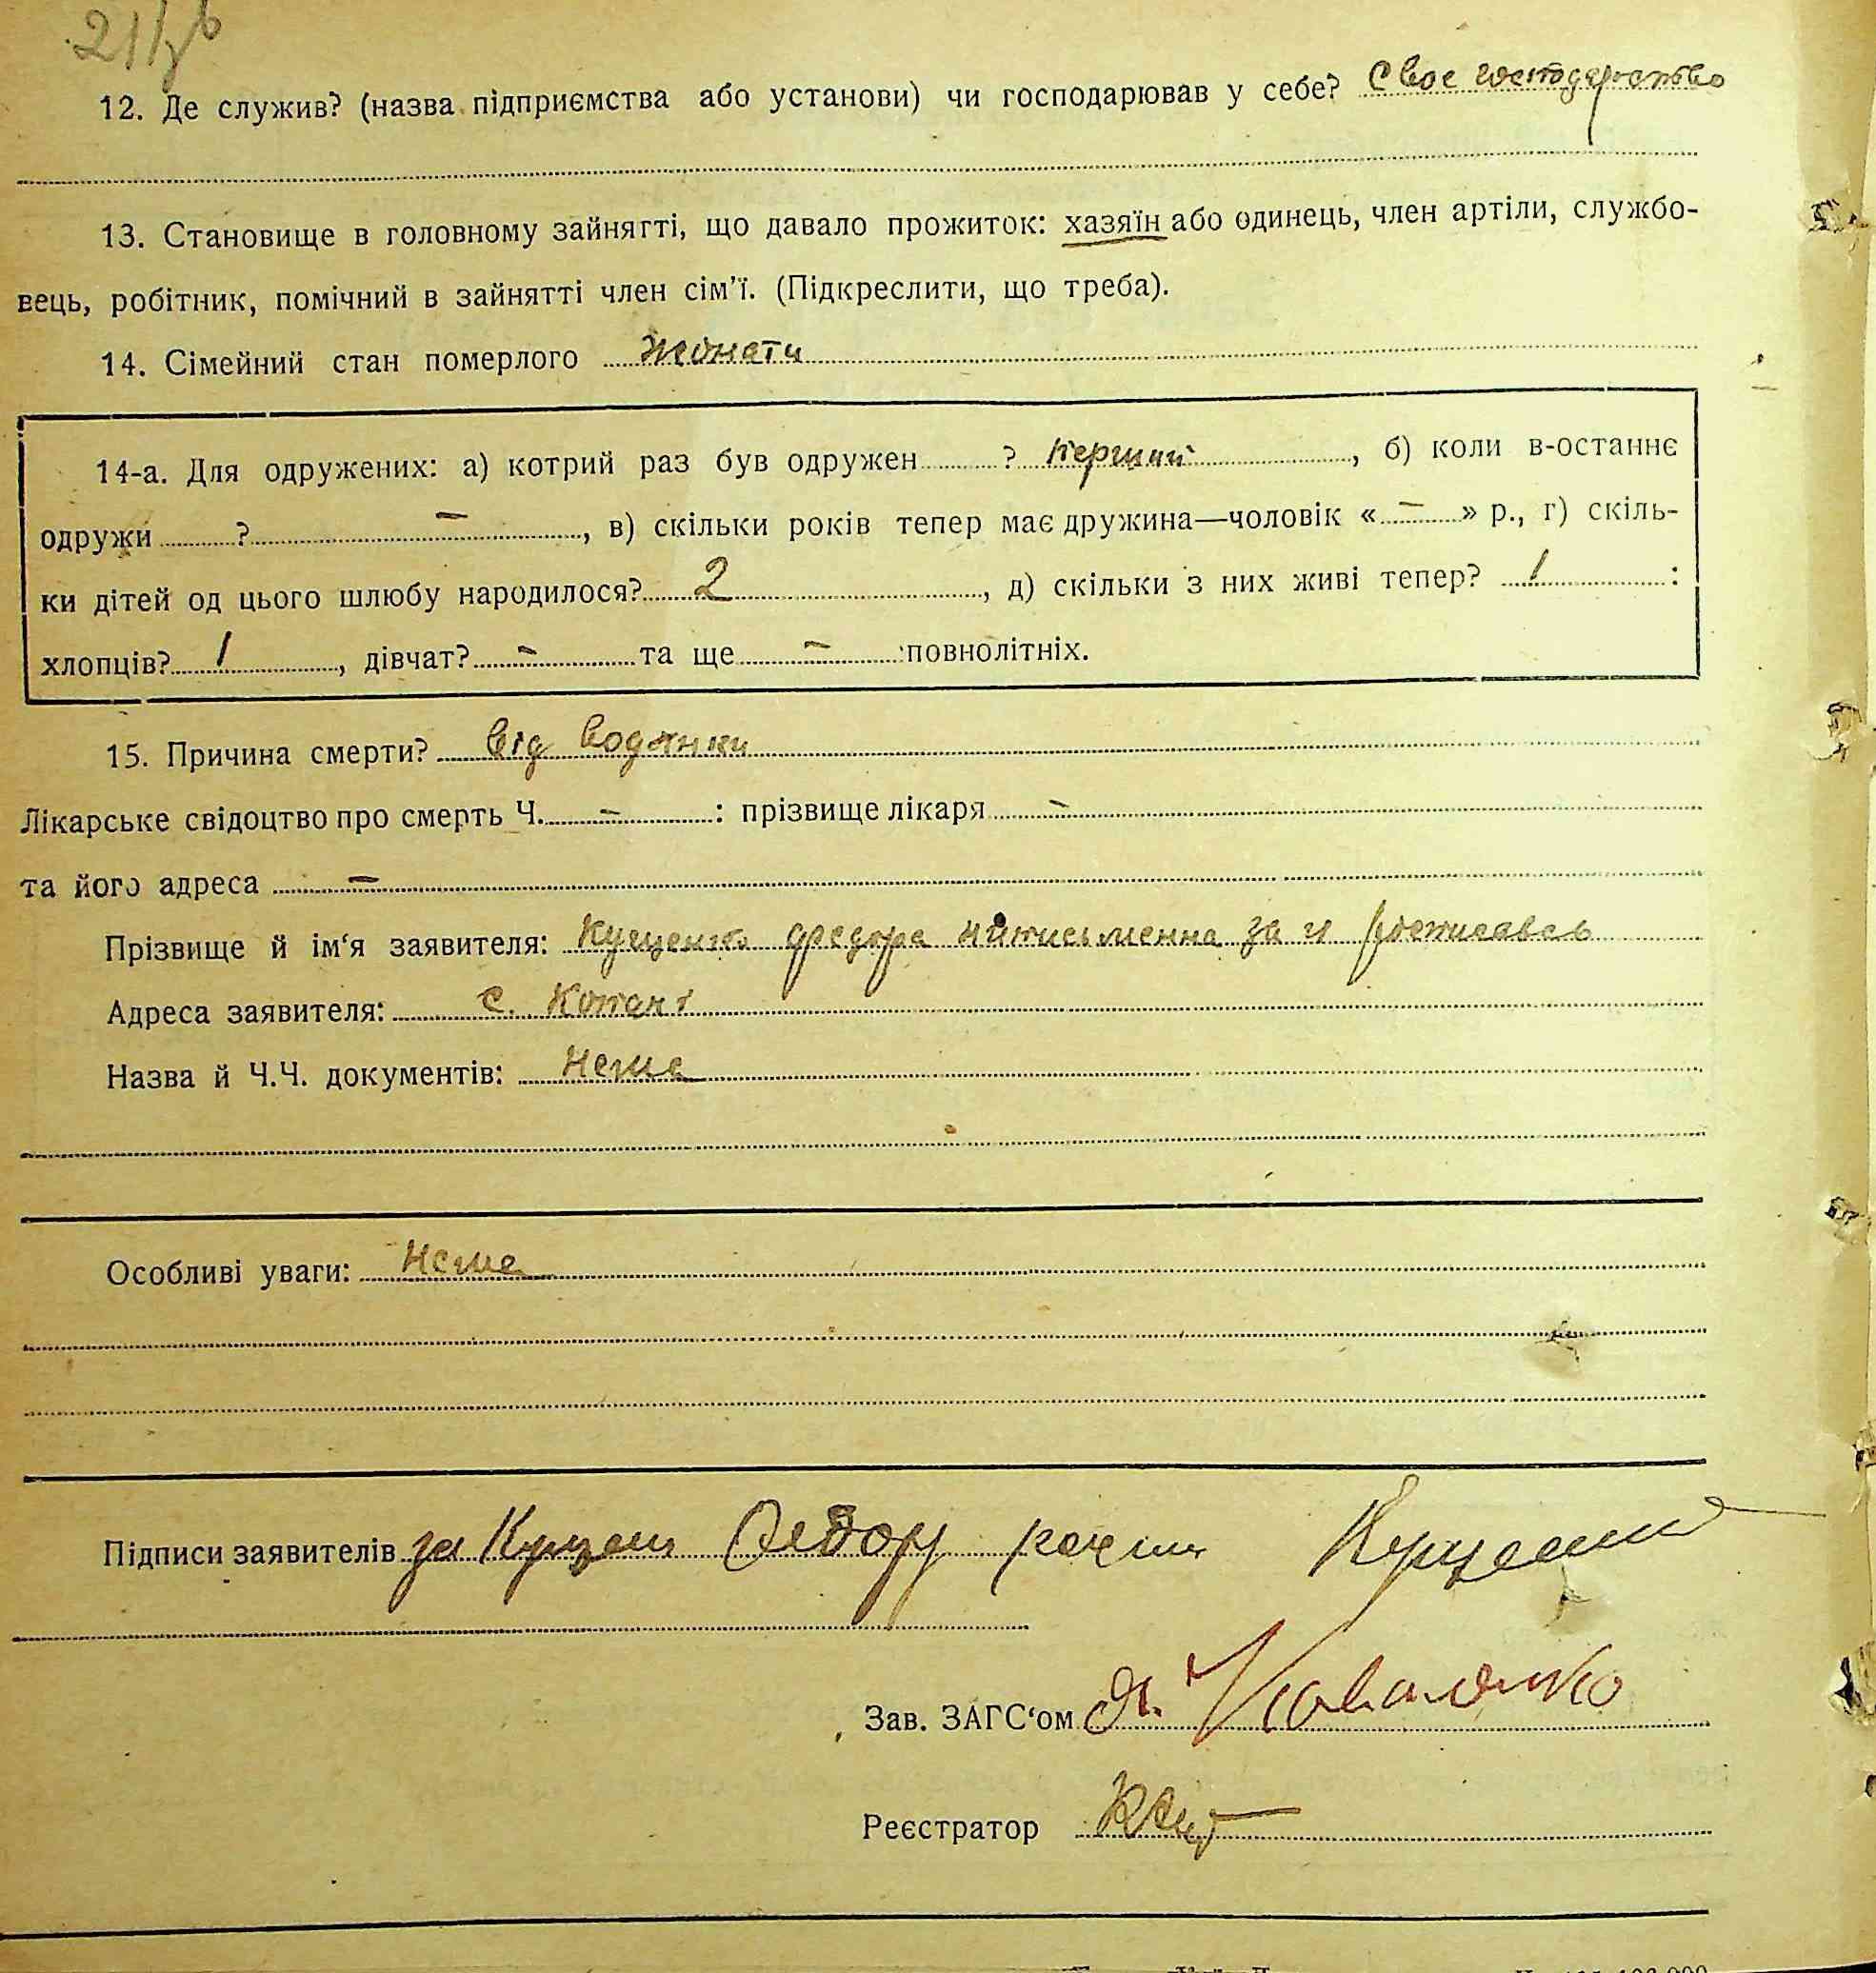 12. Де служив? (назва підприємства або установи) чи господарював у себе? Своє господарство
13. Становище в головному зайнятті, що давало прожиток: хазяїн або одинець, член артіли, службо-
вець, робітник, помічний в зайнятті член сім'ї. (Підкреслити, що треба).
14. Сімейний стан померлого жонати
14-а. Для одружених: а) котрий раз був одружен ? перший, б) коли в-останнє
одружи ? –, в) скільки років тепер має дружина—чоловік « – » р., г) скіль-
ки дітей од цього шлюбу народилося? 2, д) скільки з них живі тепер? 1 :
хлопців? 1, дівчат? – та ще – повнолітніх.
15. Причина смерти? від водянки
Лікарське свідоцтво про смерть Ч. – : прізвище лікаря –
та його адреса –
Прізвище й ім'я заявителя: Куценко Федора нитисьменна за її росписавсь
Адреса заявителя: с. Копані
Назва й Ч.Ч. документів: Нема
Особливі уваги: Нема
Підписи заявителів за Куценко Федору
Зав. ЗАГС'ом Коваленко
Реєстратор